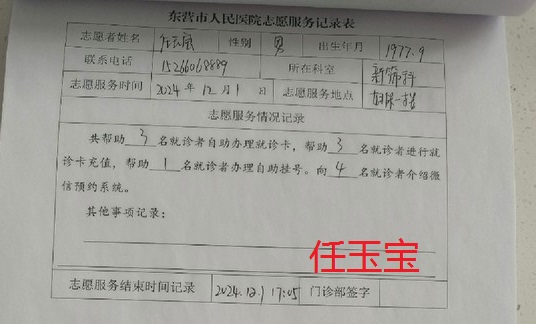 东营市人民医院志愿服务记录表
志愿者姓名 性别 男 出生年月 1977.9
联系电话 15266068889 所在科室 新筛科
志愿服务时间 2024年12月1日 志愿服务地点
志愿服务情况记录
共帮助3名就诊者自助办理就诊卡，帮助3名就诊者进行就
诊卡充值，帮助1名就诊者办理自助挂号。向4名就诊者介绍微
信预约系统。
其他事项记录：
任玉宝
志愿服务结束时间记录 2024.12.1 17:05 门诊部签字